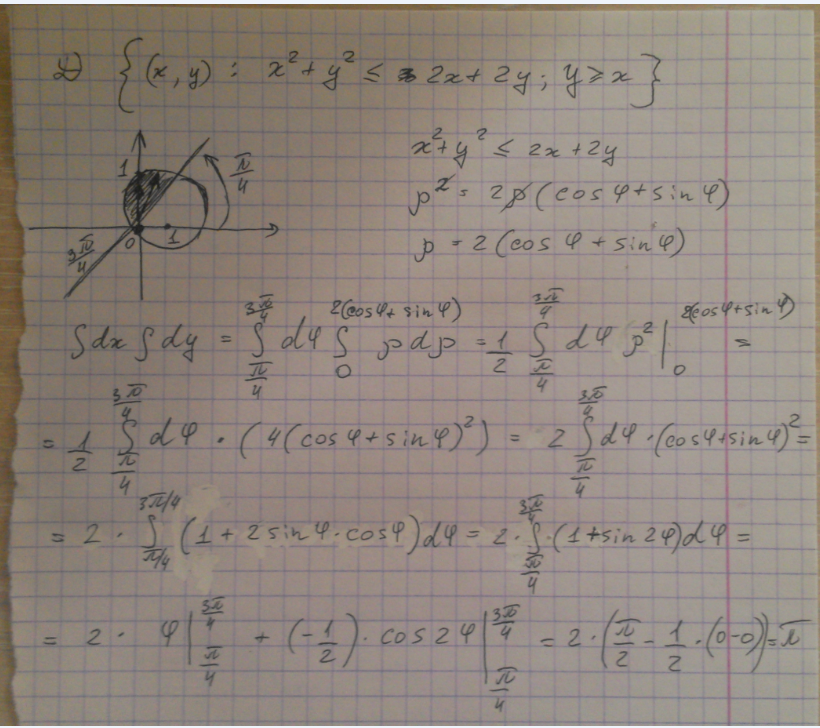 D) {(x, y) : x² + y² ≤ 2x + 2y ; y ≥ x}
x² + y² ≤ 2x + 2y
ρ² = 2ρ(cos φ + sin φ)
ρ = 2(cos φ + sin φ)
1
π/4
0
1
3π/4
∫dx ∫dy = ∫_{π/4}^{3π/4} dφ ∫_0^{2(cosφ + sinφ)} ρ dρ = 1/2 ∫_{π/4}^{3π/4} dφ ρ² |_0^{2(cosφ + sinφ)} =
= 1/2 ∫_{π/4}^{3π/4} dφ · (4(cosφ + sinφ)²) = 2 ∫_{π/4}^{3π/4} dφ · (cosφ + sinφ)² =
= 2 · ∫_{π/4}^{3π/4} (1 + 2 sin φ · cos φ) dφ = 2 · ∫_{π/4}^{3π/4} · (1 + sin 2φ) dφ =
= 2 · φ |_{π/4}^{3π/4} + (-1/2) · cos 2φ |_{π/4}^{3π/4} = 2 · (π/2 - 1/2 · (0-0)) = π